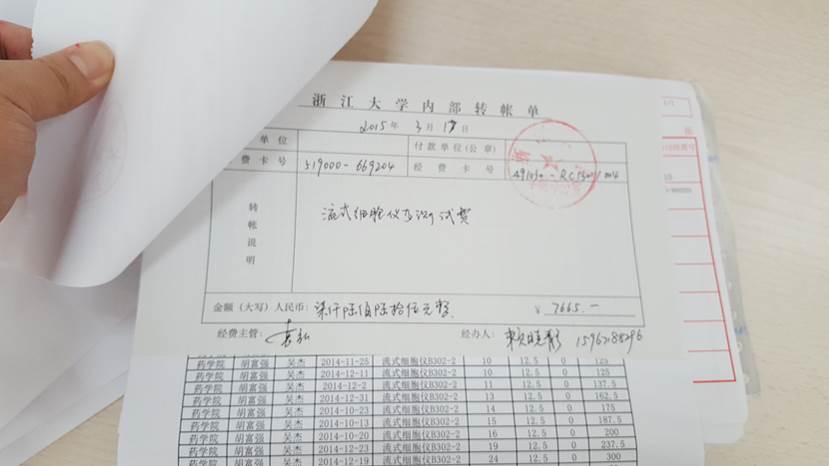 浙江大学内部转帐单
2015年3月17日
单位 付款单位(公章)
费卡号 519000-669204 经费卡号
转帐说明 流式细胞仪 测试费
金额(大写)人民币: 柒仟陆佰陆拾伍元整 ¥ 7665.—
经费主管: 经办人: 15962188296
药学院 胡富强 吴杰 2014-11-25 流式细胞仪B302-2 10 12.5 0 125
药学院 胡富强 吴杰 2014-12-11 流式细胞仪B302-2 10 12.5 0 125
药学院 胡富强 吴杰 2014-12-2 流式细胞仪B302-2 11 12.5 0 137.5
药学院 胡富强 吴杰 2014-12-31 流式细胞仪B302-2 13 12.5 0 162.5
药学院 胡富强 吴杰 2014-10-23 流式细胞仪B302-2 14 12.5 0 175
药学院 胡富强 吴杰 2014-10-13 流式细胞仪B302-2 15 12.5 0 187.5
药学院 胡富强 吴杰 2014-10-20 流式细胞仪B302-2 16 12.5 0 200
药学院 胡富强 吴杰 2014-10-23 流式细胞仪B302-2 19 12.5 0 237.5
药学院 胡富强 吴杰 2014-12-19 流式细胞仪B302-2 24 12.5 0 300